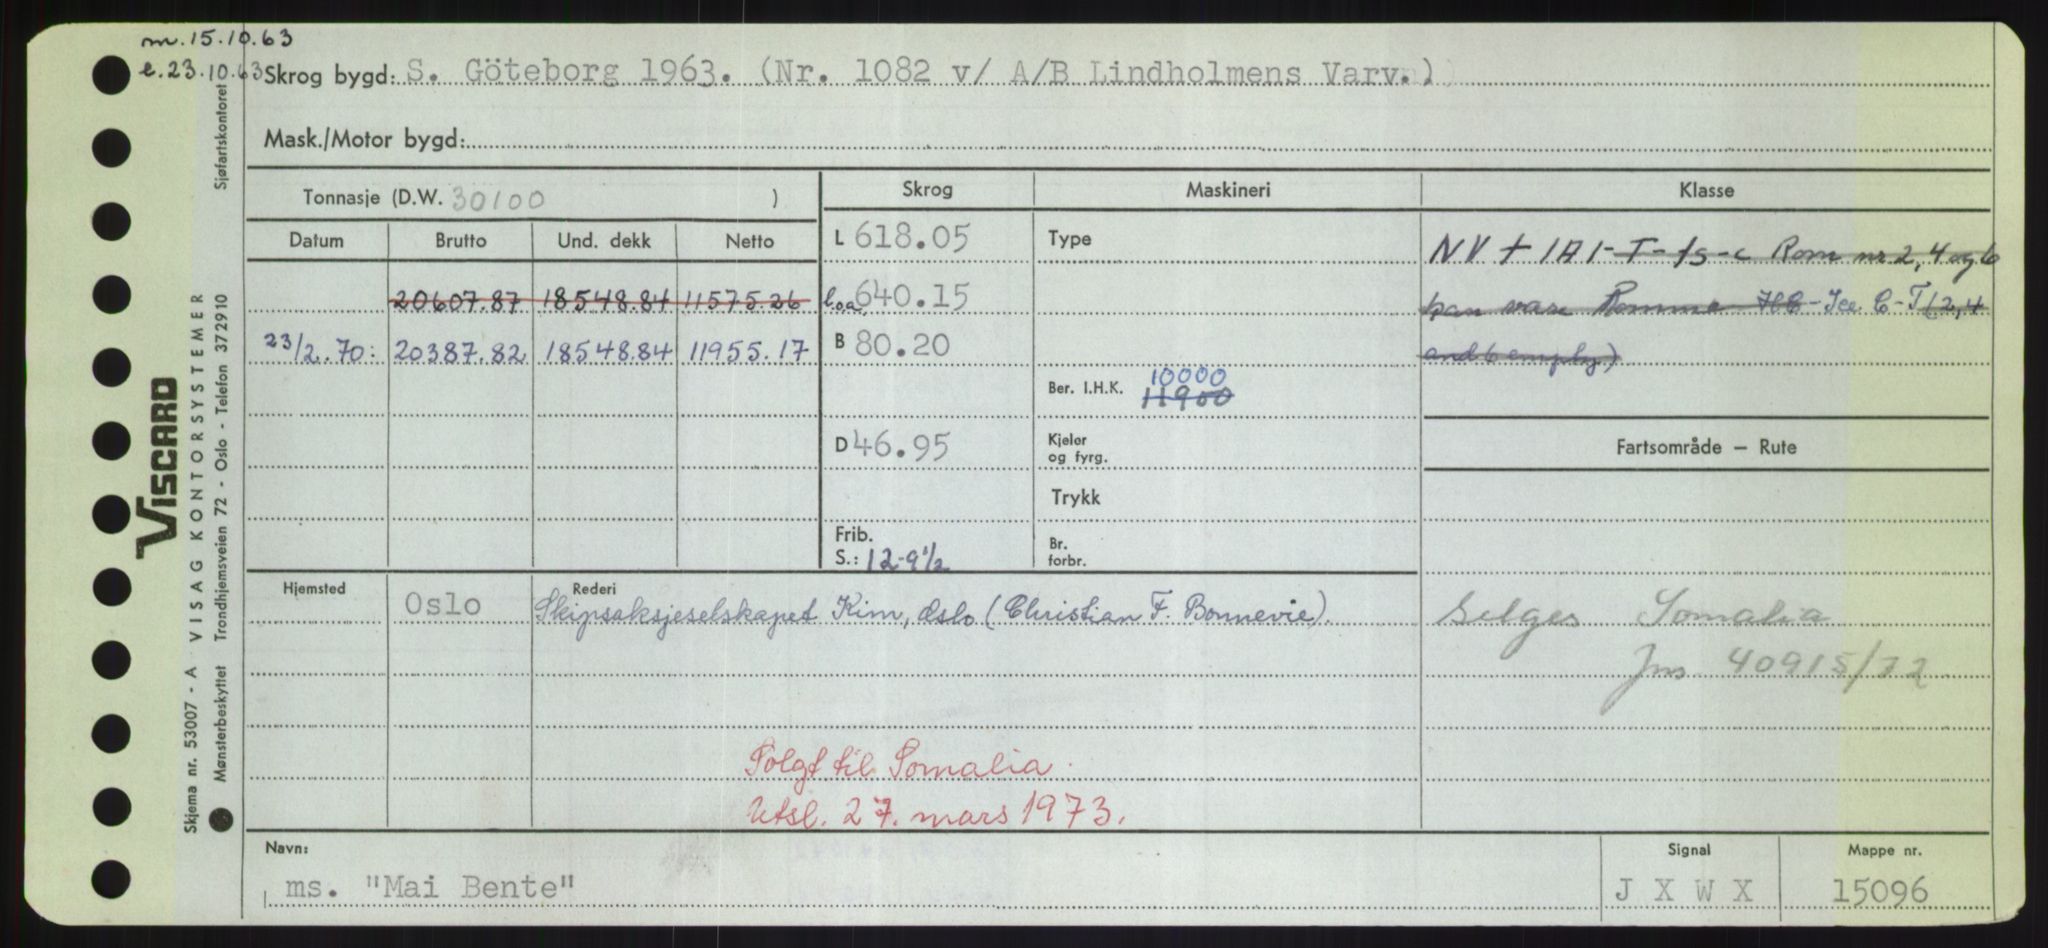 m. 15.10.63
e. 23.10.63
Skrog bygd: S. Göteborg 1963. (Nr. 1082 v/ A/B Lindholmens Varv.)
Mask./Motor bygd:
Tonnasje (D.W. 30100 )
Skrog
Maskineri
Klasse
Datum
Brutto
Und. dekk
Netto
L 618.05
Type
NV + 1A1-T-fs-c Rom nr 2, 4 og 6
20607.87 18548.84 11575.26
l.o.a. 640.15
kan være Romme HC-Ice C-T (2,4
23/2.70: 20387.82 18548.84 11955.17
B 80.20
and 6 empty)
Ber. I.H.K. 10000
11900
D 46.95
Kjeler
og fyrg.
Fartsområde — Rute
Trykk
Frib.
S.: 12-9½
Br.
forbr.
Hjemsted
Oslo
Rederi
Skipsaksjeselskapet Kim, Oslo (Christian F. Bonnevie).
Selges Somalia
Jnr 40915/72
Solgt til Somalia.
Utsl. 27. mars 1973.
Navn:
ms. "Mai Bente"
Signal
J X W X
Mappe nr.
15096
VISCARD
Skjema nr. 53007 - A VISAG KONTORSYSTEMER
Mønsterbeskyttet Trondhjemsveien 72 - Oslo - Telefon 372910 Sjøfartskontoret